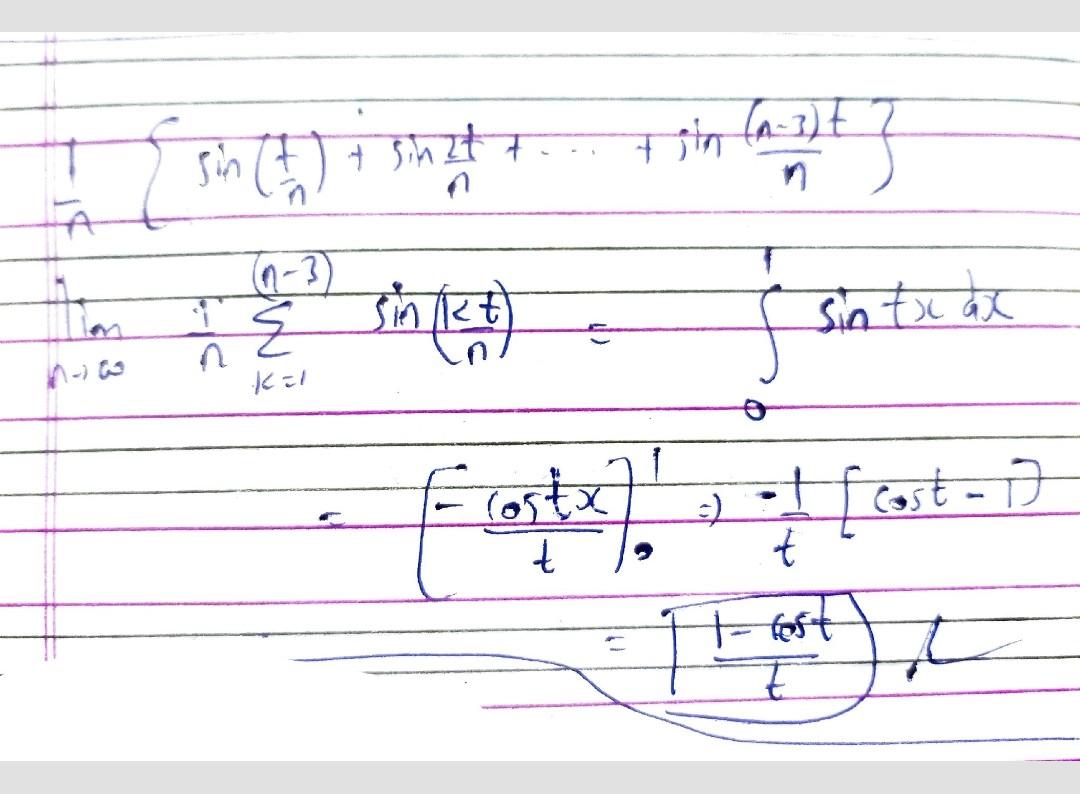 1/n { sin(t/n) + sin 2t/n + .... + sin (n-3)t/n }
lim n→∞ 1/n Σ_{k=1}^{(n-3)} sin(kt/n) = ∫_0^1 sin tx dx
= [- cos tx/t]_0^1 ⇒ -1/t [cos t - 1]
= 1 - cos t/t